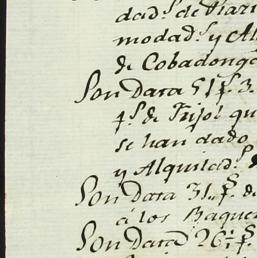 dad.s de Mari
modad.s y Al
de Cobadonga
Son Data 51 f.s 3.
4.s de Frijol qu
se han dado
y Alquilad.s
Son Data 31 f.s de
á los Baque
Son Data 26 1/2 f.s